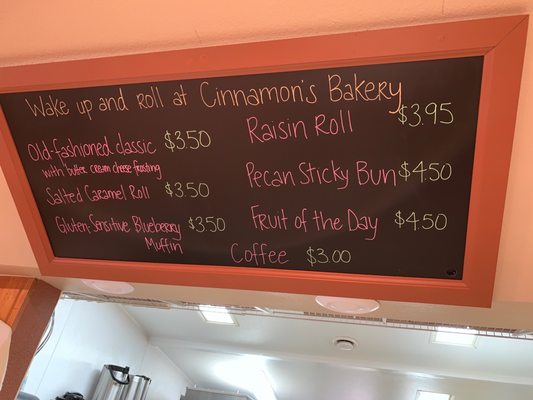 Wake up and roll at Cinnamon's Bakery
Old-fashioned classic $3.50
with butter cream cheese frosting
Salted Caramel Roll $3.50
Gluten-Sensitive Blueberry $3.50
Muffin
Raisin Roll $3.95
Pecan Sticky Bun $4.50
Fruit of the Day $4.50
Coffee $3.00